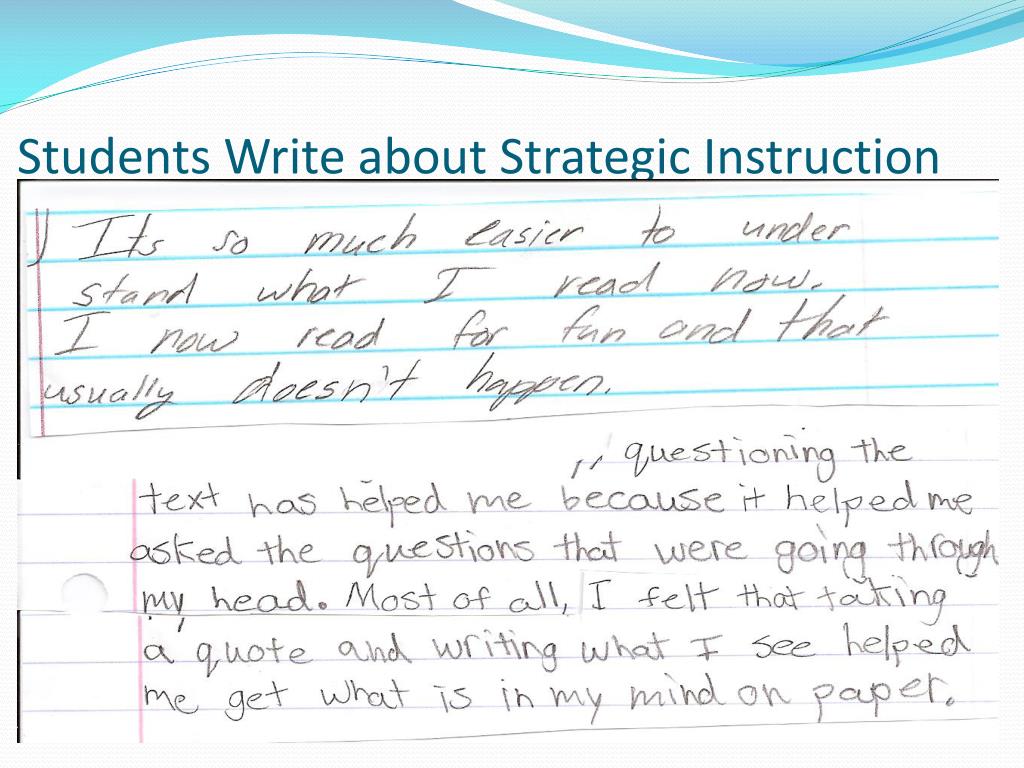 Students Write about Strategic Instruction
) Its so much easier to under
stand what I read now.
I now read for fun and that
usually doesn't happen.
,, questioning the
text has helped me because it helped me
asked the questions that were going through
my head. Most of all, I felt that taking
a quote and writing what I see helped
me get what is in my mind on paper.